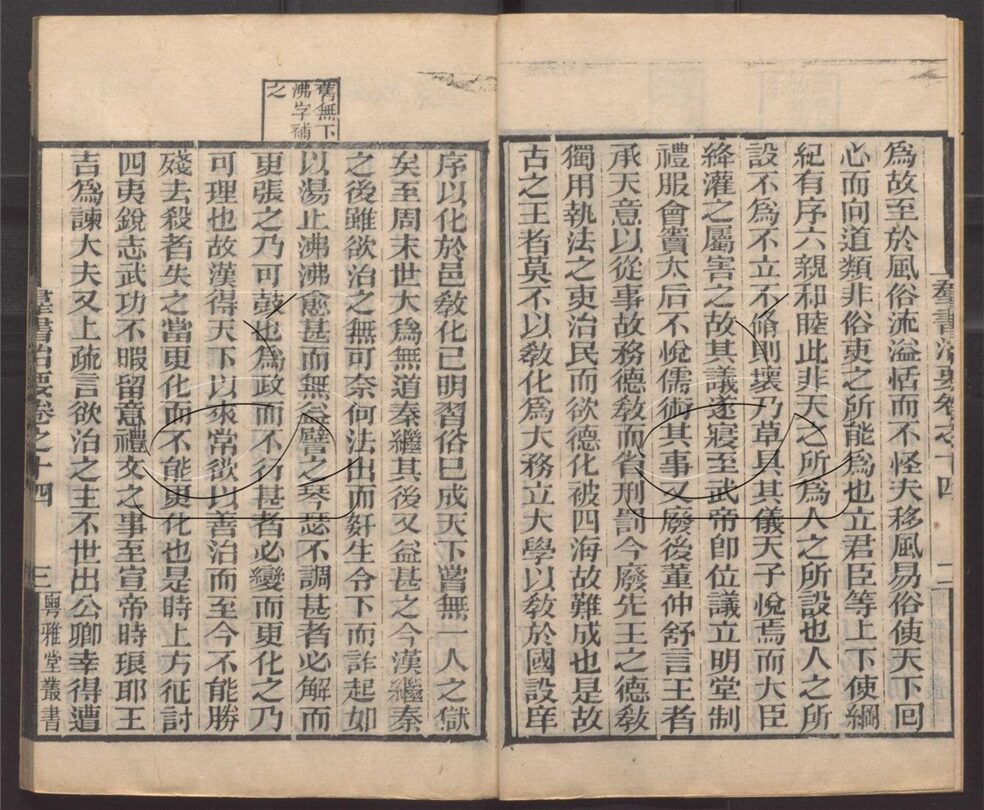 爲故至於風俗流溢恬而不怪夫移風易俗使天下囘
心而向道類非俗吏之所能爲也立君臣等上下使綱
紀有序六親和睦此非天之所爲人之所設也人之所
設不爲不立不脩則壞乃草具其儀天子悅焉而大臣
絳灌之屬害之故其議遂寢至武帝卽位議立明堂制
禮服會竇太后不悅儒術其事又廢後董仲舒言王者
承天意以從事故務德敎而省刑罰今廢先王之德敎
獨用執法之吏治民而欲德化被四海故難成也是故
古之王者莫不以敎化爲大務立大學以敎於國設庠
羣書治要卷之十四 二
序以化於邑敎化已明習俗已成天下嘗無一人之獄
矣至周末世大爲無道秦繼其後又益甚之今漢繼秦
之後雖欲治之無可奈何法出而姧生令下而詐起如
以湯止沸沸愈甚而無益譬之琴瑟不調甚者必解而
更張之乃可鼓也爲政而不行甚者必變而更化之乃
可理也故漢得天下以來常欲以善治而至今不能勝
殘去殺者失之當更化而不能更化也是時上方征討
四夷銳志武功不暇留意禮文之事至宣帝時琅耶王
吉爲諫大夫又上疏言欲治之主不世出公卿幸得遭
舊無下
沸字補
之
羣書治要卷之十四 三 粵雅堂叢書